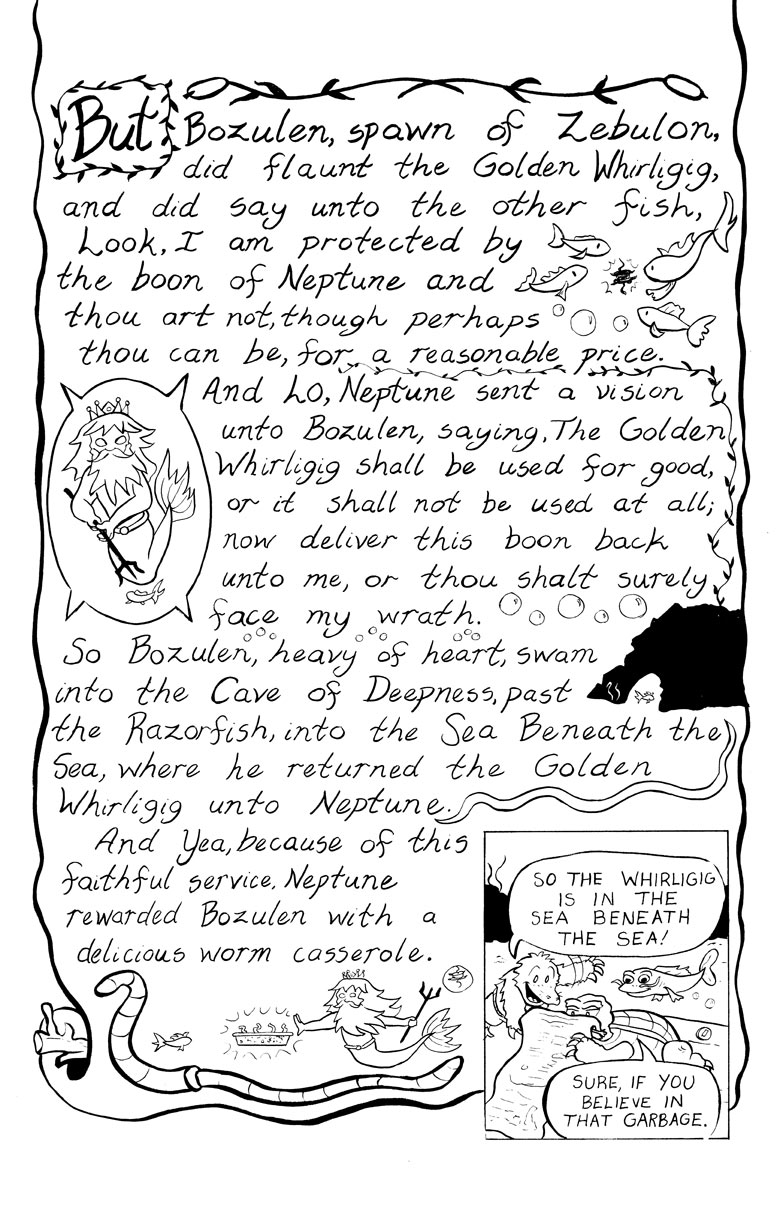 But Bozulen, spawn of Zebulon,
did flaunt the Golden Whirligig,
and did say unto the other fish,
Look, I am protected by
the boon of Neptune and
thou art not, though perhaps
thou can be, for a reasonable price.
And LO, Neptune sent a vision
unto Bozulen, saying, The Golden
Whirligig shall be used for good,
or it shall not be used at all;
now deliver this boon back
unto me, or thou shalt surely
face my wrath.
So Bozulen, heavy of heart, swam
into the Cave of Deepness, past
the Razorfish, into the Sea Beneath the
Sea, where he returned the Golden
Whirligig unto Neptune.
And Yea, because of this
faithful service, Neptune
rewarded Bozulen with a
delicious worm casserole.
SO THE WHIRLIGIG
IS IN THE
SEA BENEATH
THE SEA!
SURE, IF YOU
BELIEVE IN
THAT GARBAGE.